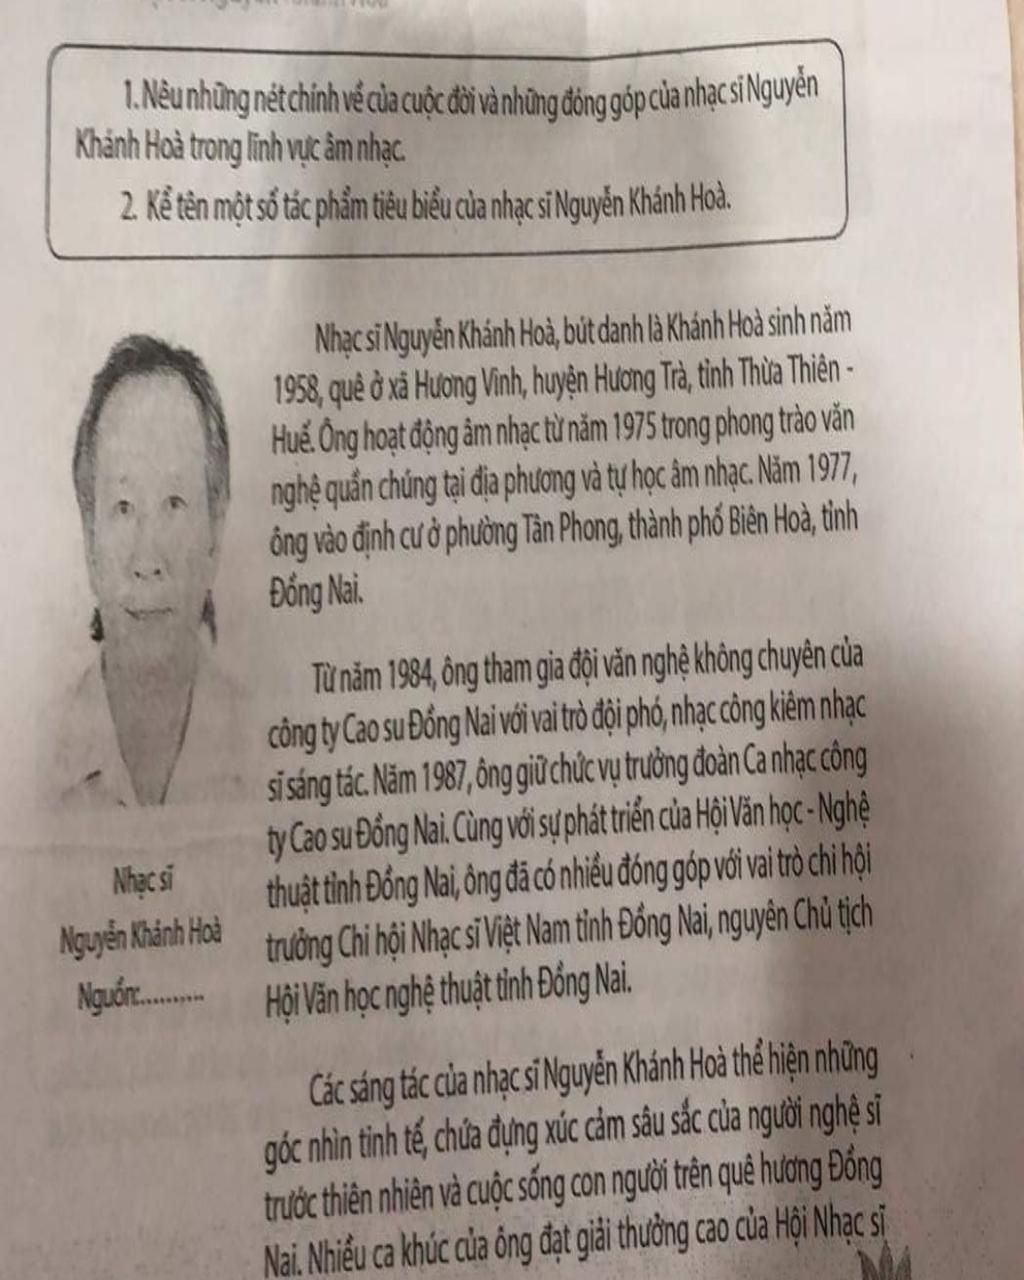 1. Nêu những nét chính về của cuộc đời và những đóng góp của nhạc sĩ Nguyễn
Khánh Hoà trong lĩnh vực âm nhạc.
2. Kể tên một số tác phẩm tiêu biểu của nhạc sĩ Nguyễn Khánh Hoà.
Nhạc sĩ
Nguyễn Khánh Hoà
Nguồn:..........
Nhạc sĩ Nguyễn Khánh Hoà, bút danh là Khánh Hoà sinh năm
1958, quê ở xã Hương Vinh, huyện Hương Trà, tỉnh Thừa Thiên -
Huế. Ông hoạt động âm nhạc từ năm 1975 trong phong trào văn
nghệ quần chúng tại địa phương và tự học âm nhạc. Năm 1977,
ông vào định cư ở phường Tân Phong, thành phố Biên Hoà, tỉnh
Đồng Nai.
Từ năm 1984, ông tham gia đội văn nghệ không chuyên của
công ty Cao su Đồng Nai với vai trò đội phó, nhạc công kiêm nhạc
sĩ sáng tác. Năm 1987, ông giữ chức vụ trưởng đoàn Ca nhạc công
ty Cao su Đồng Nai. Cùng với sự phát triển của Hội Văn học - Nghệ
thuật tỉnh Đồng Nai, ông đã có nhiều đóng góp với vai trò chi hội
trưởng Chi hội Nhạc sĩ Việt Nam tỉnh Đồng Nai, nguyên Chủ tịch
Hội Văn học nghệ thuật tỉnh Đồng Nai.
Các sáng tác của nhạc sĩ Nguyễn Khánh Hoà thể hiện những
góc nhìn tinh tế, chứa đựng xúc cảm sâu sắc của người nghệ sĩ
trước thiên nhiên và cuộc sống con người trên quê hương Đồng
Nai. Nhiều ca khúc của ông đạt giải thưởng cao của Hội Nhạc sĩ